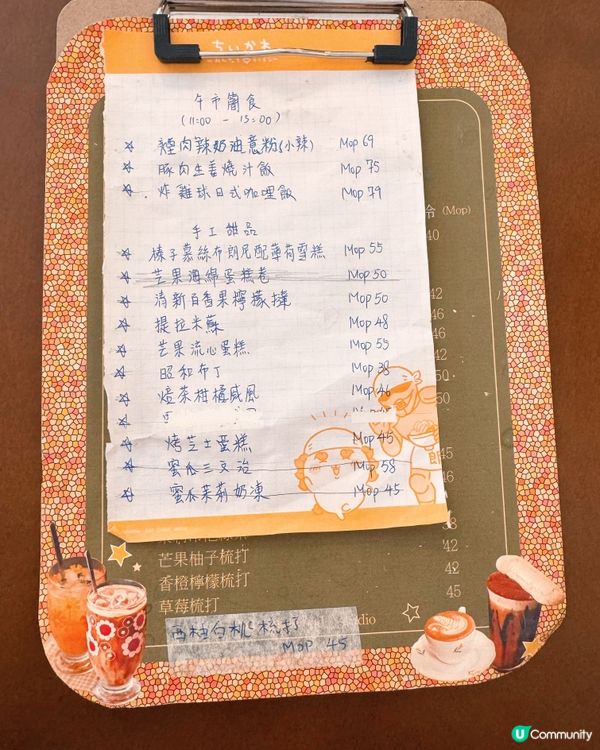 ちいかわ
午市簡食
(11:00 - 15:00)
☆ 煙肉辣奶油意粉(小辣) Mop 69
☆ 豚肉生姜燒汁飯 Mop 75
☆ 炸雞球日式咖哩飯 Mop 79
手工甜品
☆ 榛子慕絲布朗尼配薄荷雪糕 Mop 55
☆ 芒果海綿蛋糕卷 Mop 50
☆ 清新百香果檸檬撻 Mop 50
☆ 提拉米蘇 Mop 48
☆ 芒果流心蛋糕 Mop 55
☆ 昭和布丁 Mop 38
☆ 焙茶柑橘戚風 Mop 46
☆ 烤芝士蛋糕 Mop 45
☆ 蜜瓜三文治 Mop 58
☆ 蜜瓜茉莉奶凍 Mop 45
冷 (Mop)
40
42
46
46
42
50
50
45
45
46
38
芒果柚子梳打 42
香橙檸檬梳打 42
草莓梳打 45
dio
西柚白桃梳打
MOP 45
U Community